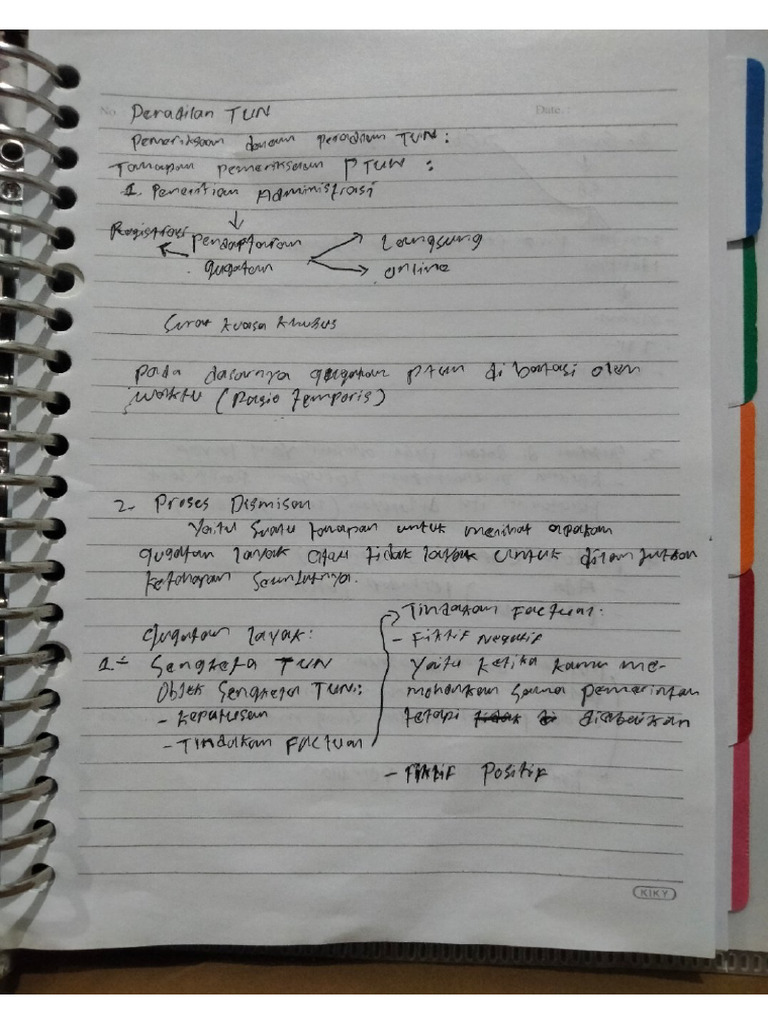 No. Peradilan TUN
Date. :
Pemeriksaan dalam peradilan TUN :
Tahapan pemeriksaan PTUN :
1. Penelitian Administrasi
Registrasi Pendaftaran Langsung
gugatan online
Surat kuasa khusus
Pada dasarnya gugatan PTUN di batasi oleh
waktu (Rasio temporis)
2. Proses Dismisal
Yaitu suatu tahapan untuk melihat apakah
gugatan layak atau tidak layak untuk dilanjutkan
ketahapan selanjutnya.
gugatan layak:
1. Sengketa TUN
Objek Sengketa TUN:
- keputusan
- Tindakan Factual
Tindakan Factual:
- Fiktif Negatif
Yaitu ketika kamu me-
mohonkan sama pemerintah
tetapi diabaikan
- Fiktif Positif
KIKY